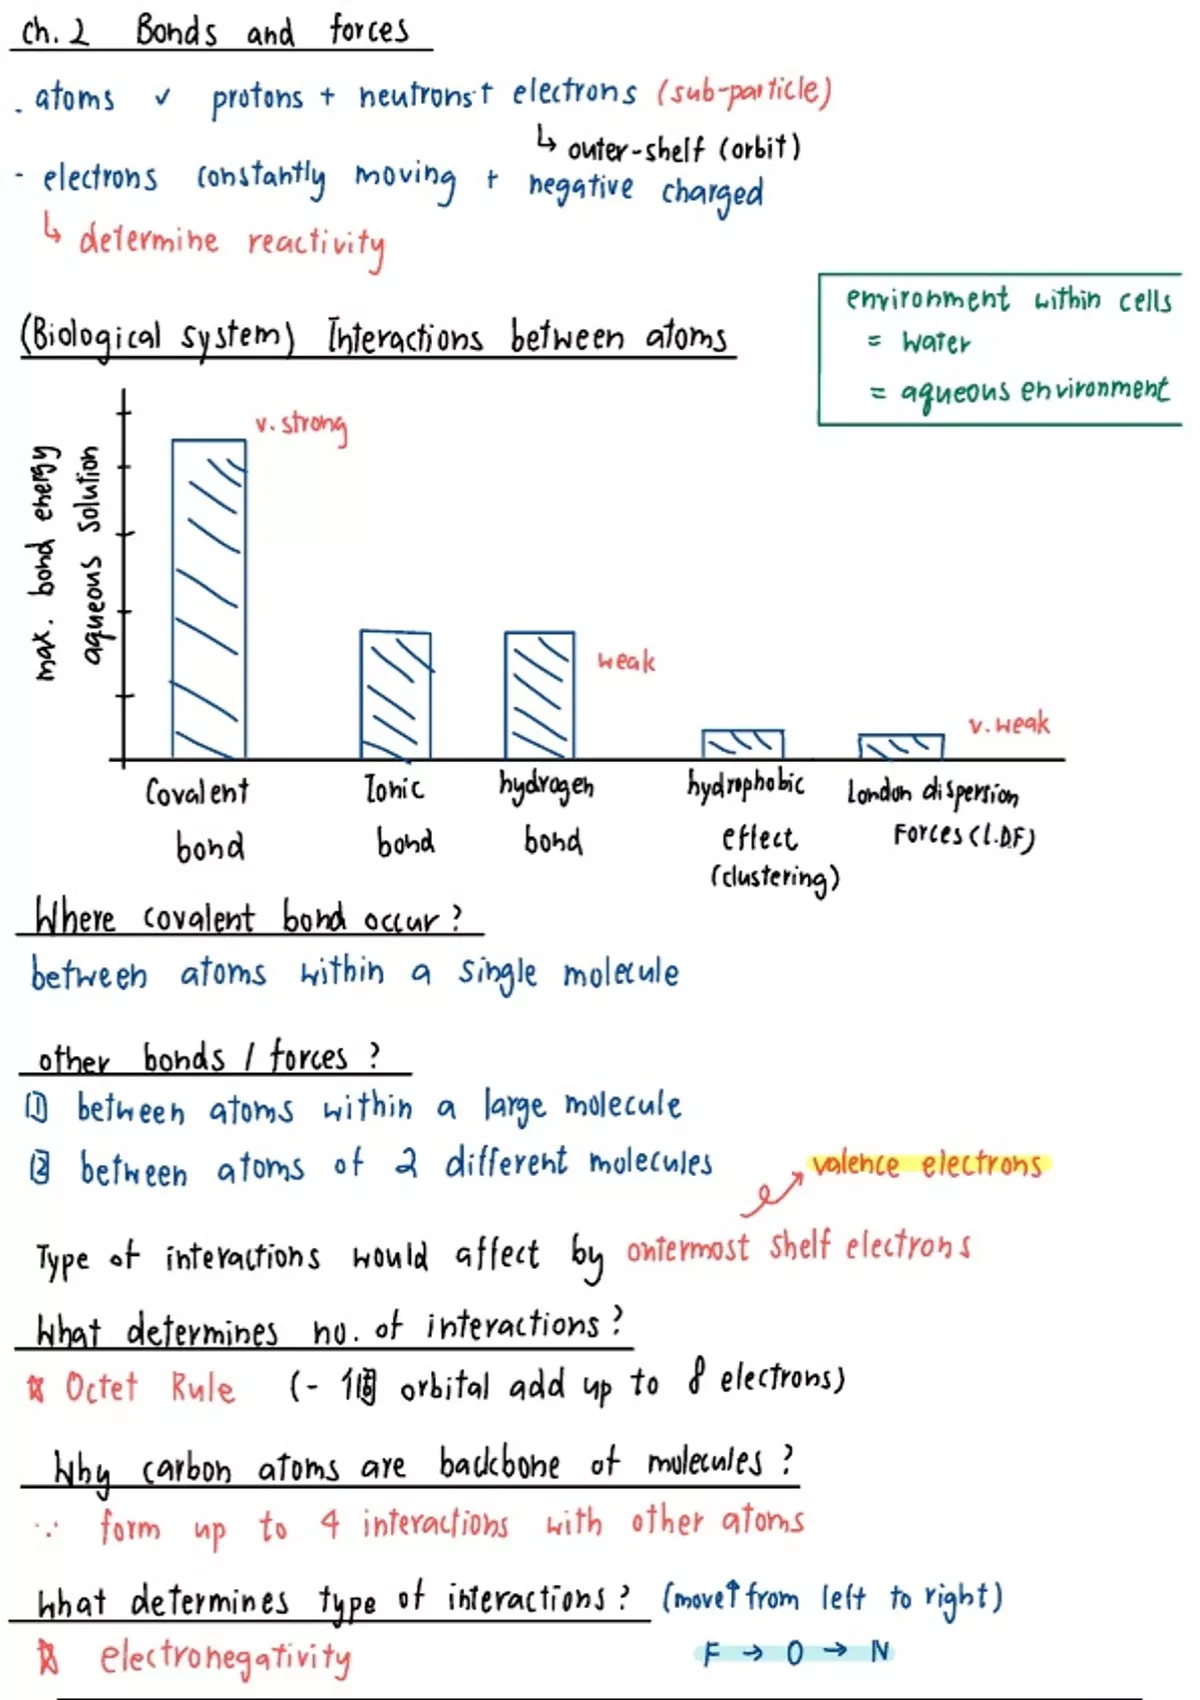 Ch. 2 Bonds and forces
. atoms ✓ protons + neutrons + electrons (sub-particle)
↳ outer-shelf (orbit)
- electrons constantly moving + negative charged
↳ determine reactivity
environment within cells
= water
= aqueous environment
(Biological system) Interactions between atoms
max. bond energy
aqueous solution
v. strong
weak
v. weak
Covalent bond
Ionic bond
hydrogen bond
hydrophobic effect (clustering)
London dispersion Forces (L.D.F)
Where covalent bond occur?
between atoms within a single molecule
other bonds / forces?
① between atoms within a large molecule
② between atoms of 2 different molecules
valence electrons
Type of interactions would affect by outermost shelf electrons
What determines no. of interactions?
☆ Octet Rule (- 1個 orbital add up to 8 electrons)
Why carbon atoms are backbone of molecules?
∵ form up to 4 interactions with other atoms
What determines type of interactions? (move↑ from left to right)
☆ electronegativity F → O → N